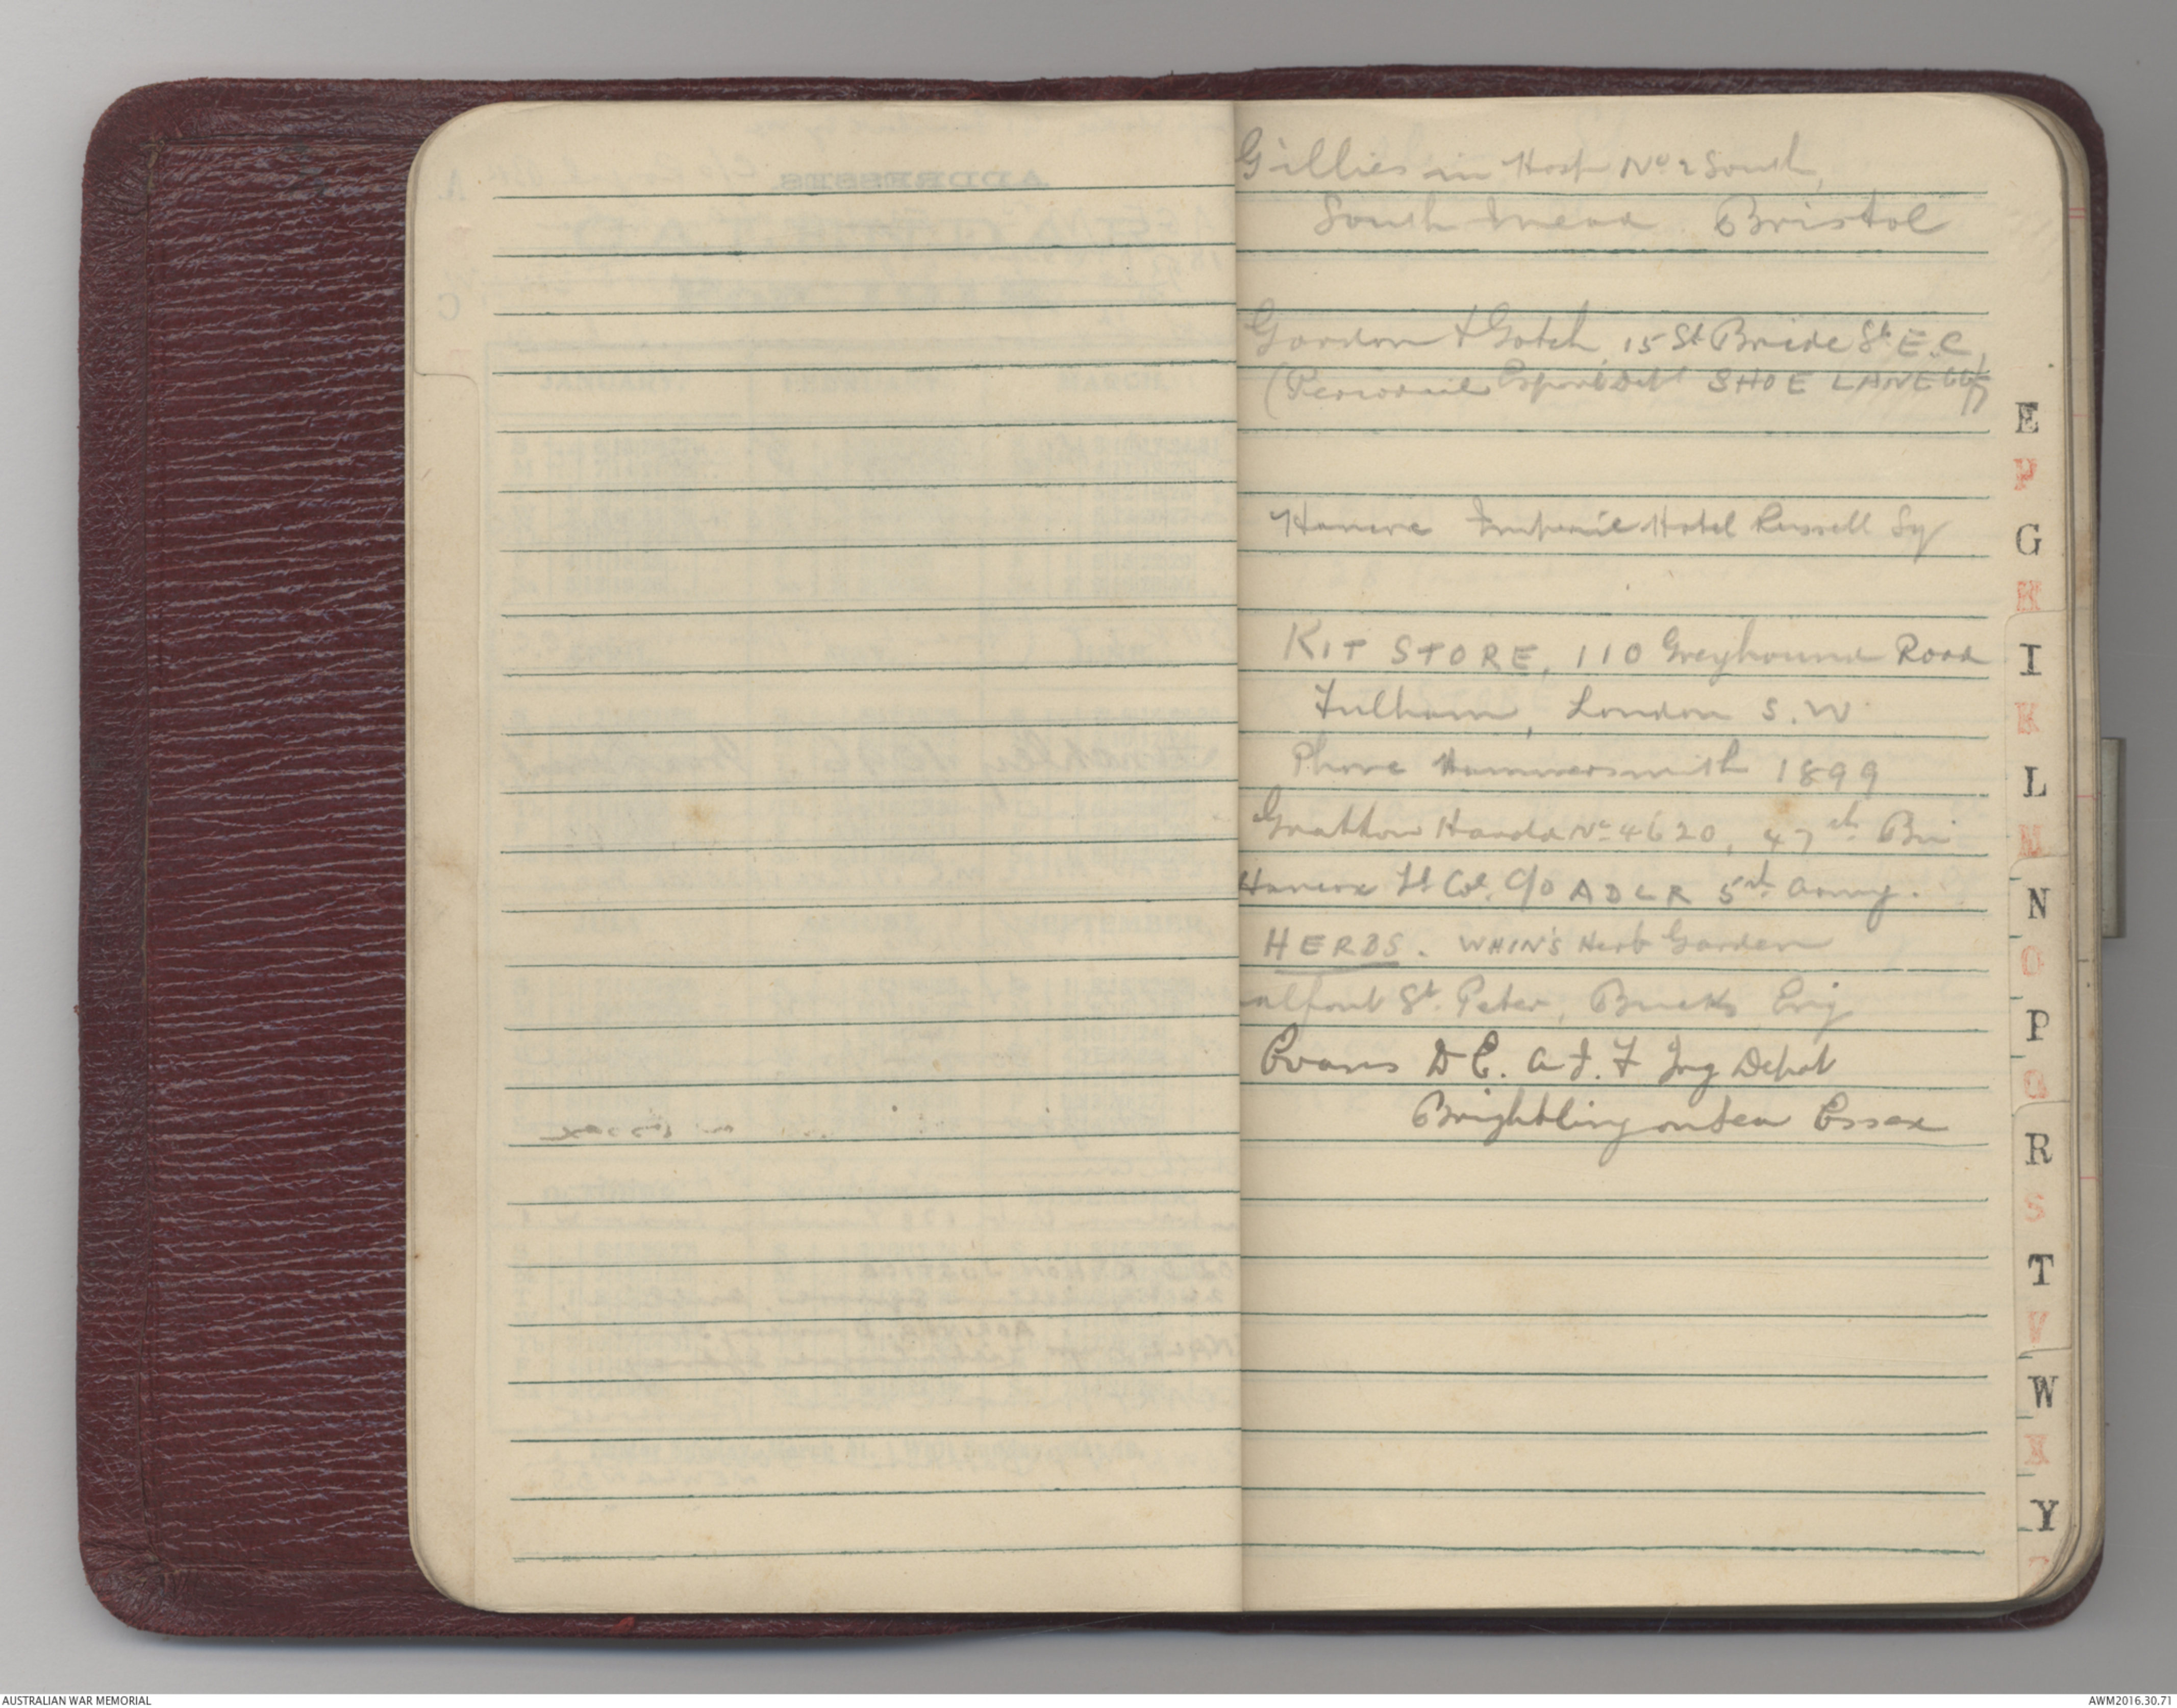 Gillies in Hosp No 2 South,
South Mead Bristol
Gordon & Gotch, 15 St Bride St E.C,
(Periodical Export Dept SHOE LANE
Imperial Hotel Russell Sq
KIT STORE, 110 Greyhound Road
Fulham, London S.W
Phone Hammersmith 1899
Gratton Harold No 4620, 47th Bn
Lt Col. C/O ADLR 5th Army.
HERBS. WHIN'S Herb Garden
alfont St. Peter, Bucks Eng
Evans D E. A I. F Trg Depot
Brightlingonsea Essex
E
F
G
H
I
K
L
M
N
O
P
Q
R
S
T
V
W
X
Y
AUSTRALIAN WAR MEMORIAL
AWM2016.30.71